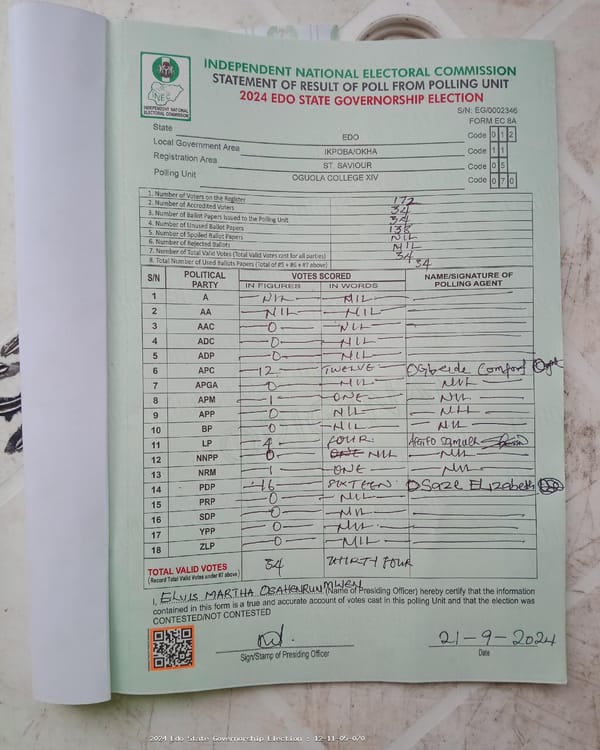 INDEPENDENT NATIONAL ELECTORAL COMMISSION
STATEMENT OF RESULT OF POLL FROM POLLING UNIT
2024 EDO STATE GOVERNORSHIP ELECTION
INDEPENDENT NATIONAL
ELECTORAL COMMISSION
S/N: EG/0002346
FORM EC 8A
State EDO Code 0 1 2
Local Government Area IKPOBA/OKHA Code 1 1
Registration Area ST. SAVIOUR Code 0 5
Polling Unit OGUOLA COLLEGE XIV Code 0 7 0
1. Number of Voters on the Register 172
2. Number of Accredited Voters 34
3. Number of Ballot Papers Issued to the Polling Unit
4. Number of Unused Ballot Papers 138
5. Number of Spoiled Ballot Papers NIL
6. Number of Rejected Ballots NIL
7. Number of Total Valid Votes (Total Valid Votes cast for all parties) 34
8. Total Number of Used Ballots Papers (Total of #5 + #6 + #7 above) 34
S/N POLITICAL PARTY VOTES SCORED NAME/SIGNATURE OF POLLING AGENT
IN FIGURES IN WORDS
1 A NIL NIL
2 AA NIL NIL
3 AAC 0 NIL
4 ADC 0 NIL
5 ADP 0 NIL
6 APC 12 TWELVE Ogbeide Comfort
7 APGA 0 NIL NIL
8 APM 1 ONE NIL
9 APP 0 NIL NIL
10 BP 0 NIL NIL
11 LP 4 FOUR
12 NNPP 0 ONE NIL NIL
13 NRM 1 ONE NIL
14 PDP 16 SIXTEEN OSAZE ELIZABETH
15 PRP 0 NIL
16 SDP 0 NIL
17 YPP 0 NIL
18 ZLP 0 NIL
TOTAL VALID VOTES 34 THIRTY FOUR
(Record Total Valid Votes under #7 above)
I, ELVIS MARTHA OSAHENRUNMWEN (Name of Presiding Officer) hereby certify that the information
contained in this form is a true and accurate account of votes cast in this polling Unit and that the election was
CONTESTED/NOT CONTESTED
21-9-2024
Sign/Stamp of Presiding Officer Date
2024 Edo State Governorship Election : 12-11-05-070